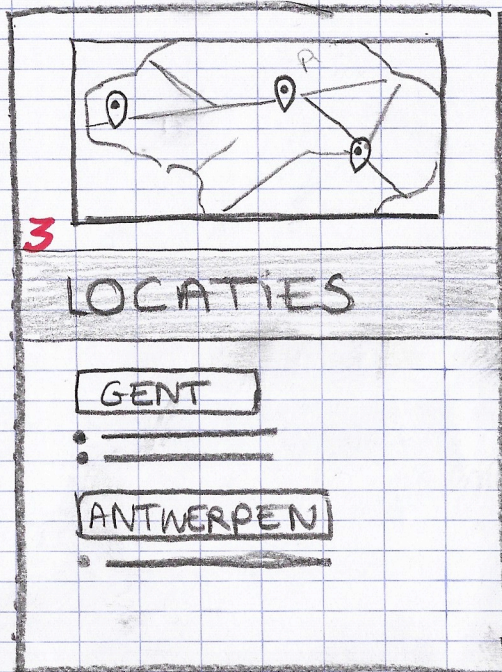 3
LOCATiES
GENT
ANTWERPEN